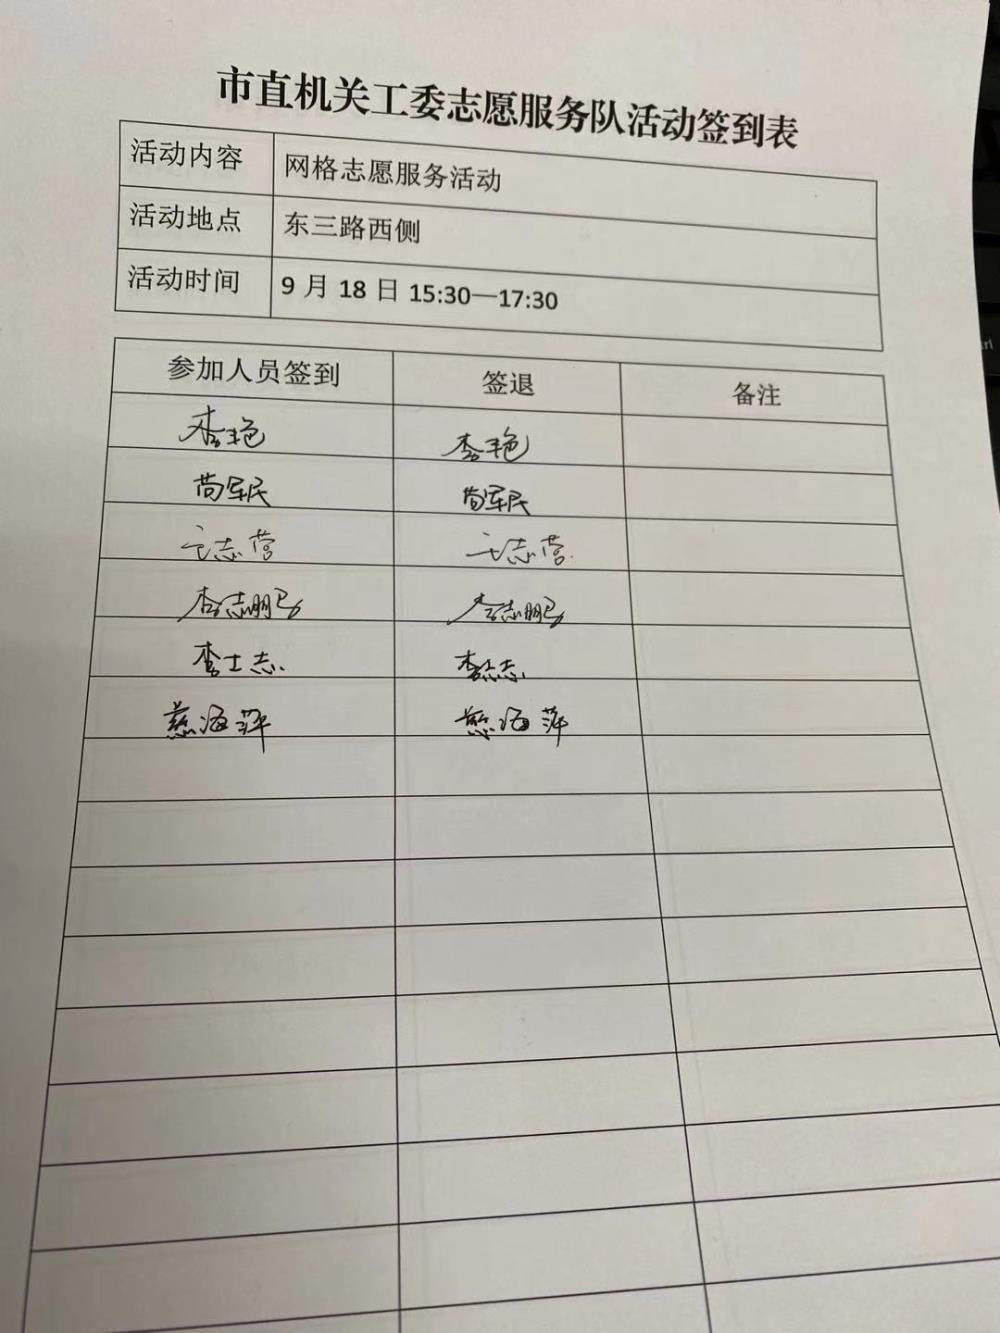 市直机关工委志愿服务队活动签到表
活动内容 网格志愿服务活动
活动地点 东三路西侧
活动时间 9 月 18 日 15:30—17:30
参加人员签到 签退 备注
李艳 李艳
尚军民 尚军民
志营 志营
李志鹏 李志鹏
李士志 李士志
慈海萍 慈海萍